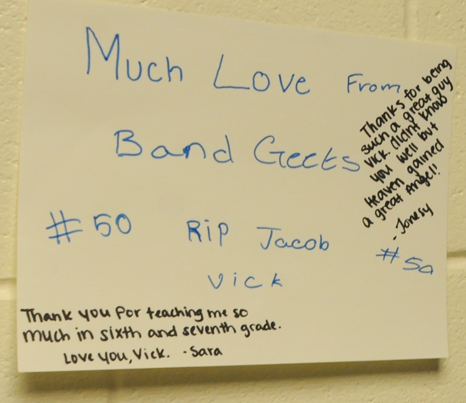 Much Love From
Band Geeks
#50 RiP Jacob
Vick
Thanks for being
such a great guy
Vick. didn't know
you well but
Heaven gained
a great Angel!
- Jonesy
#50
Thank you for teaching me so
much in sixth and seventh grade.
Love you, Vick. - Sara